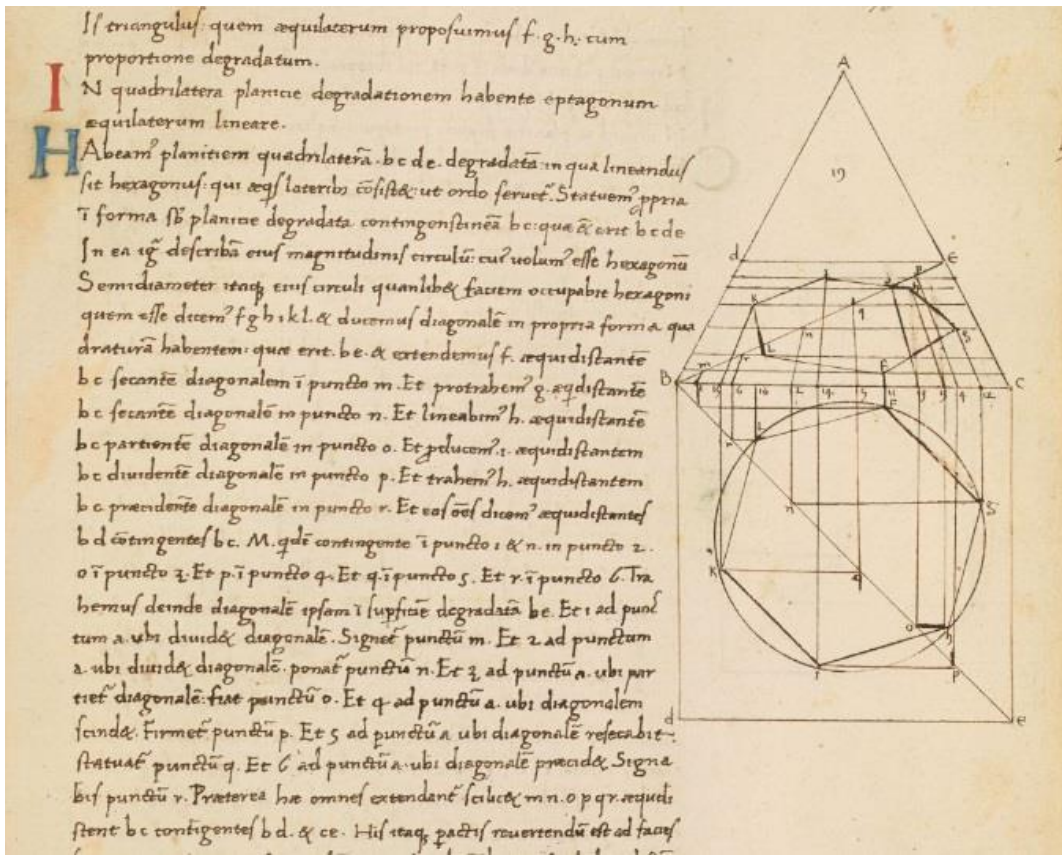 Is triangulus: quem æquilaterum proposuimus f.g.h. cum
proportione degradatum.
IN quadrilatera planicie degradationem habente eptagonum
æquilaterum lineare.
HAbeam⁹ planitiem quadrilaterā. b c d e. degradatā in qua lineandus
sit hexagonus: qui æq̨s laterib; cōsist&: ut ordo seruet̃. Statuem⁹ ppria
ī forma sƀ planicie degradata b c: quæ erit b c d e
In ea ig̃ describā eius magnitudinis circulū: cui⁹ volum⁹ esse hexagonū
Semidiameter itaq; eius circuli quanlib& faciem occupabit hexagoni
quem esse dicem⁹ f g h i k l. & ducemus diagonalē in propria forma qua
draturā habentem: quæ erit. b e. & extendemus f. æquidistantē
b c secantē diagonalem ī puncto m. Et protrahem⁹ g. æq̨distantē
b c secantē diagonalē in puncto n. Et lineabim⁹ h. æquidistantē
b c partientē diagonalē in puncto o. Et ꝓducem⁹. i. æquidistantem
b c diuidentē diagonalē in puncto p. Et trahem⁹ h. æquidistantem
b c præcidentē diagonalē in puncto r. Et eos oēs dicem⁹ æquidistantes
b d cōtingentes b c. M. q̨dē contingente ī puncto 1 & n. in puncto 2.
o ī puncto 3. Et p. ī puncto 4. Et q. ī puncto 5. Et r. ī puncto 6. Tra
hemus deinde diagonalē ipsam ī supficiē degradatā b e. Et 1 ad punc
tum a. ubi diuid& diagonalē. Signet̃ punctū m. Et 2 ad punctum
a. ubi diuid& diagonalē. ponat̃ punctū n. Et 3 ad punctū a. ubi par
tiet̃ diagonalē: fiat punctū o. Et 4 ad punctū a. ubi diagonalem
scind&. Firmet̃ punctū p. Et 5 ad punctū a ubi diagonalē resecabit
statuat̃ punctū q. Et 6 ad punctū a. ubi diagonalē præcid&. Signa
bis punctū r. Præterea hæ omnes extendant̃ scilic& m n. o p q r. æquidi
stent b c contigentes b d. & c e. His itaq; pactis reuertendū est ad facies
A
19
d e
K q n S
m r L F
B C
F
r L
n S
K q
o h
i p
d e